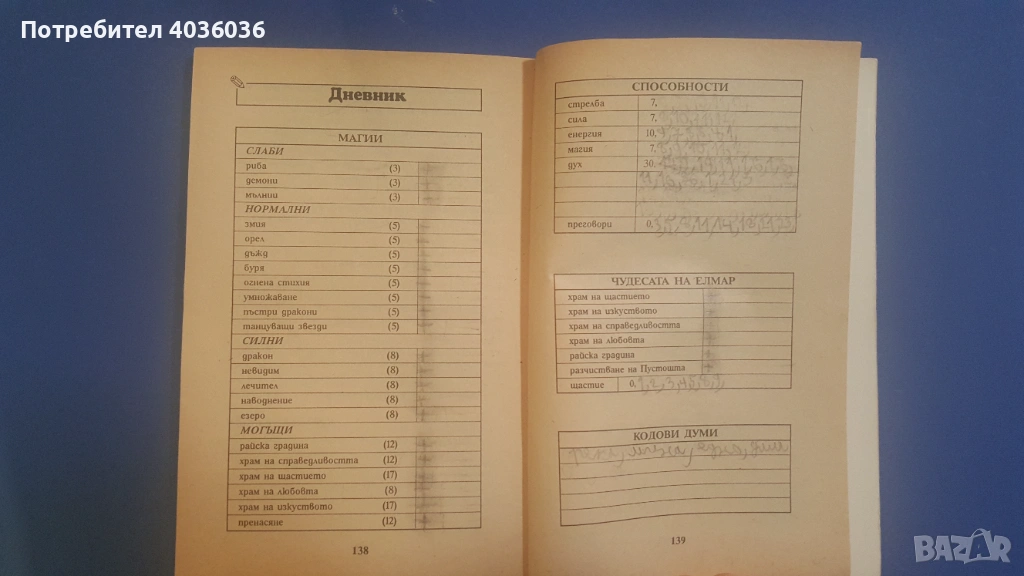 Потребител 4036036
Дневник
МАГИИ
СЛАБИ
риба (3)
демони (3)
мълнии (3)
НОРМАЛНИ
змия (5)
орел (5)
дъжд (5)
буря (5)
огнена стихия (5)
умножаване (5)
пъстри дракони (5)
танцуващи звезди (5)
СИЛНИ
дракон (8)
невидим (8)
лечител (8)
наводнение (8)
езеро (8)
МОГЪЩИ
райска градина (12)
храм на справедливостта (12)
храм на щастието (17)
храм на любовта (8)
храм на изкуството (17)
пренасяне (12)
138
СПОСОБНОСТИ
стрелба 7,
сила 7,
енергия 10,
магия 7,
дух 30,
преговори 0,
ЧУДЕСАТА НА ЕЛМАР
храм на щастието
храм на изкуството
храм на справедливостта
храм на любовта
райска градина
разчистване на Пустошта
щастие 0,
КОДОВИ ДУМИ
139
BAZAR